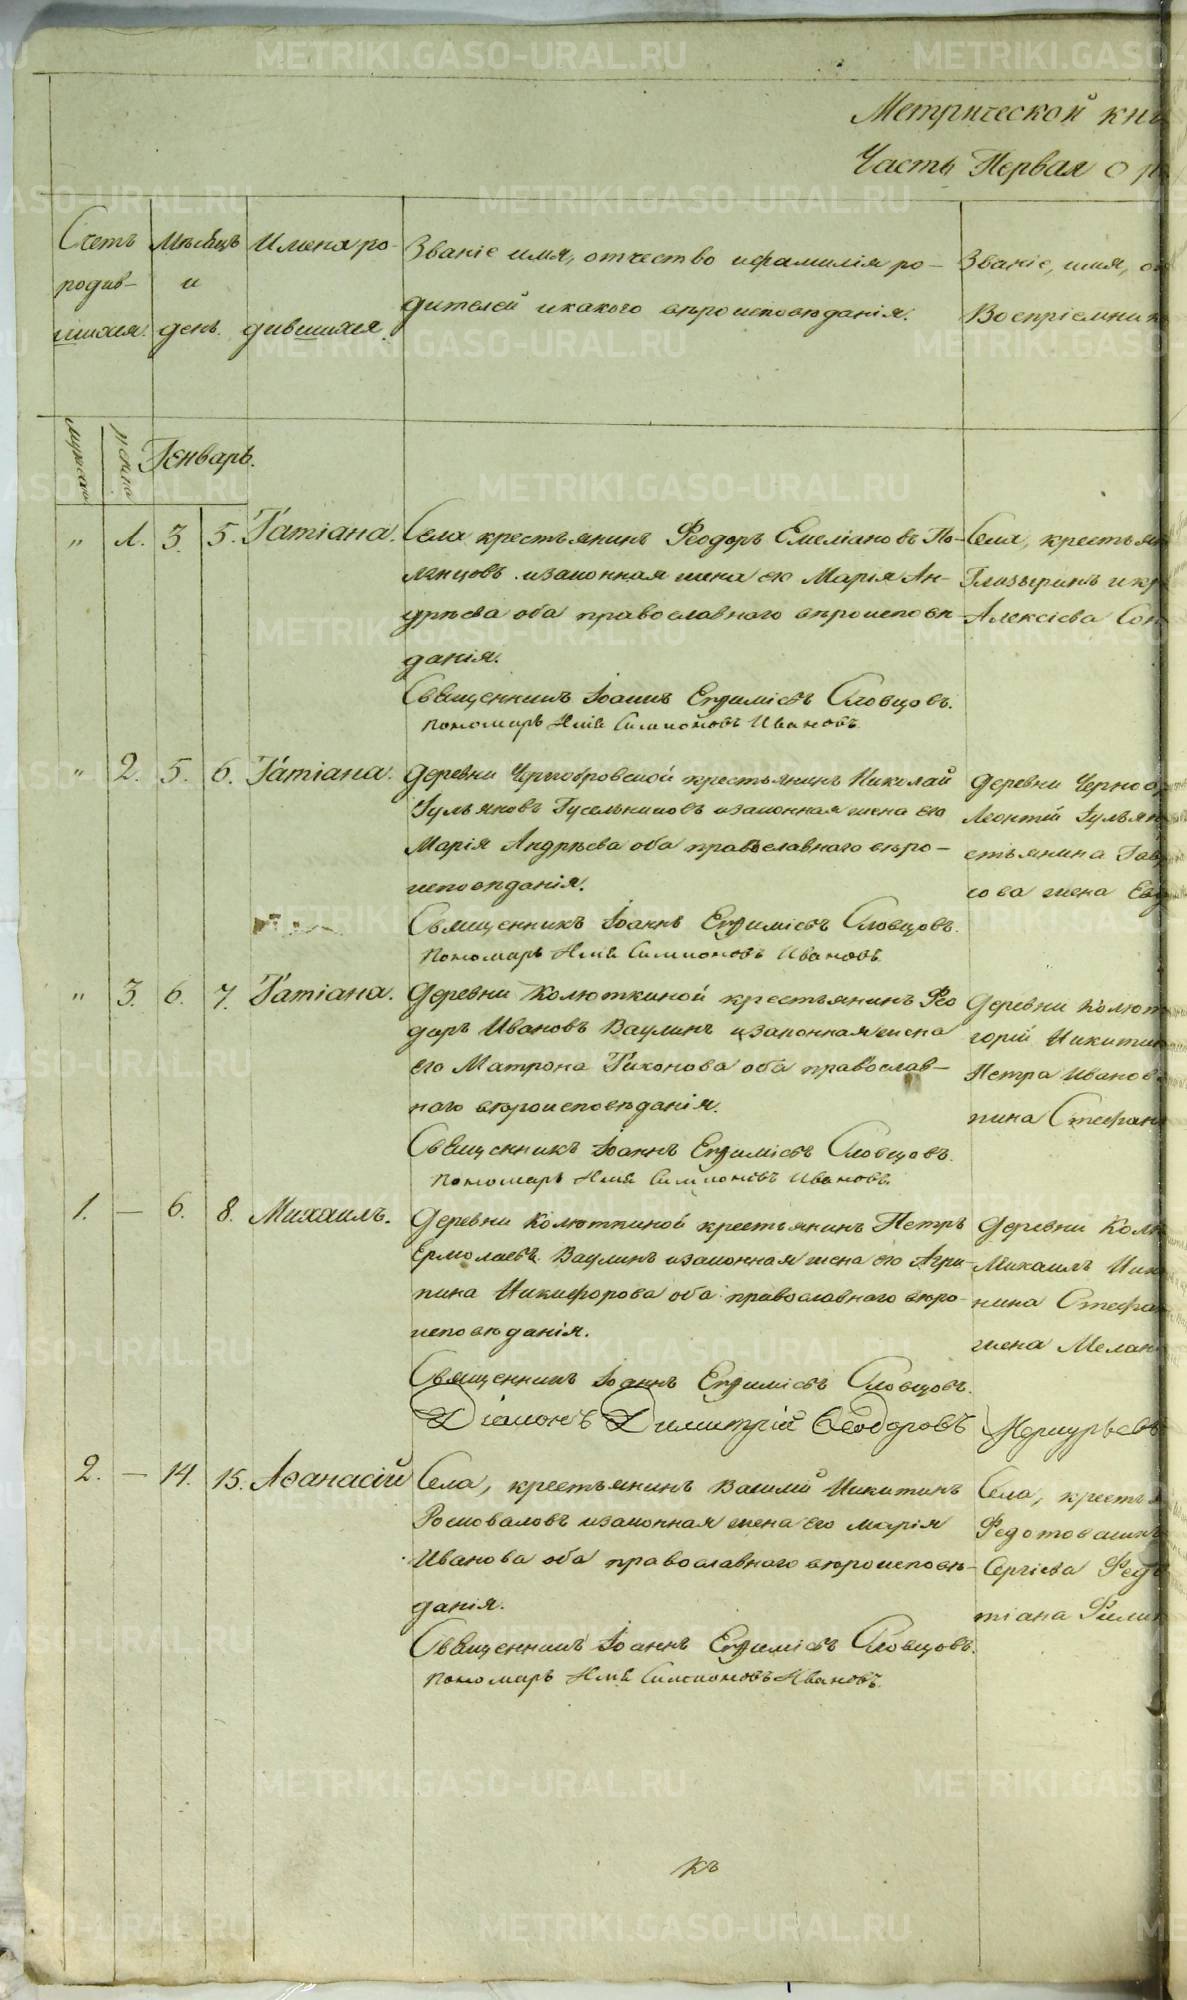 Метрической кни
Часть Первая о р
Счетъ
родив-
шихся.
Мѣсяцъ
и
день.
Имена ро-
дившихся.
Званіе имя, отчество и фамилія ро-
дителей и какого вѣроисповѣданія.
Званіе, имя, от
Воспріемнико
мужеска
женска
Генварь.
" 1. 3. 5. Татіана.
Села крестьянинъ Ѳеодоръ Емеліановъ По-
лянцовъ и законная жена его Марія Ан-
дрѣева оба православнаго вѣроисповѣ-
данія.
Священникъ Іоаннъ Евѳиміевъ Словцовъ.
Пономарь Илія Симпоновъ Ивановъ.
Села, крестьян
Глазыринъ и кр
Алексіева
" 2. 5. 6. Татіана.
Деревни Чернобровской крестьянинъ Николай
Іульяновъ Гусельниковъ и законная жена его
Марія Андрѣева оба православнаго вѣро-
исповѣданія.
Священникъ Іоаннъ Евѳиміевъ Словцовъ.
Пономарь Илія Симпоновъ Ивановъ.
Деревни Чернобр
Леонтій Іульян
стьянина Гав
сова жена Евд
" 3. 6. 7. Татіана.
Деревни Колюткиной крестьянинъ Ѳео
доръ Ивановъ Ваулинъ и законная жена
его Матрона Тихонова оба православ-
наго вѣроисповѣданія.
Священникъ Іоаннъ Евѳиміевъ Словцовъ.
Пономарь Илія Симпоновъ Ивановъ.
Деревни Колют
горій Никитин
Петра Иванов
нина Стефан
1. — 6. 8. Михаилъ.
Деревни Колюткиной крестьянинъ Петръ
Ермолаевъ Ваулинъ и законная жена его Агри-
пина Никифорова оба православнаго вѣро-
исповѣданія.
Священникъ Іоаннъ Евѳиміевъ Словцовъ.
Діаконъ Димитрій Ѳеодоровъ Меркурьевъ
Деревни Колю
Михаилъ Ник
нина Стефан
жена Мелан
2. — 14. 15. Аѳанасій
Села, крестьянинъ Василій Никитинъ
Росковаловъ и законная жена его Марія
Иванова оба православнаго вѣроисповѣ-
данія.
Священникъ Іоаннъ Евѳиміевъ Словцовъ.
Пономарь Илія Симпоновъ Ивановъ.
Села, крестья
Ѳедотовскихъ
Сергіева Ѳед
тіана Фили
Къ
METRIKI.GASO-URAL.RU